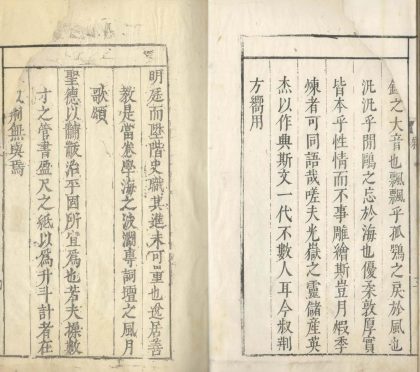 之大音也飄飄乎孤鶚之戾於風也
汎汎乎閒鷗之忘於海也優柔敦厚實
皆本乎性情而不事雕繪斯豈月煆季
煉者可同語哉嗟夫光嶽之靈儲產英
杰以作典斯文一代不數人耳今叔荆
方嚮用
明廷而歷階史職其進未可量也居
教定當卷學海之波瀾專詞壇之風月
歌頌
聖德以黼黻治平固所宜爲也若夫操數
才之管書盈尺之紙以爲升斗計者在
荆無與焉